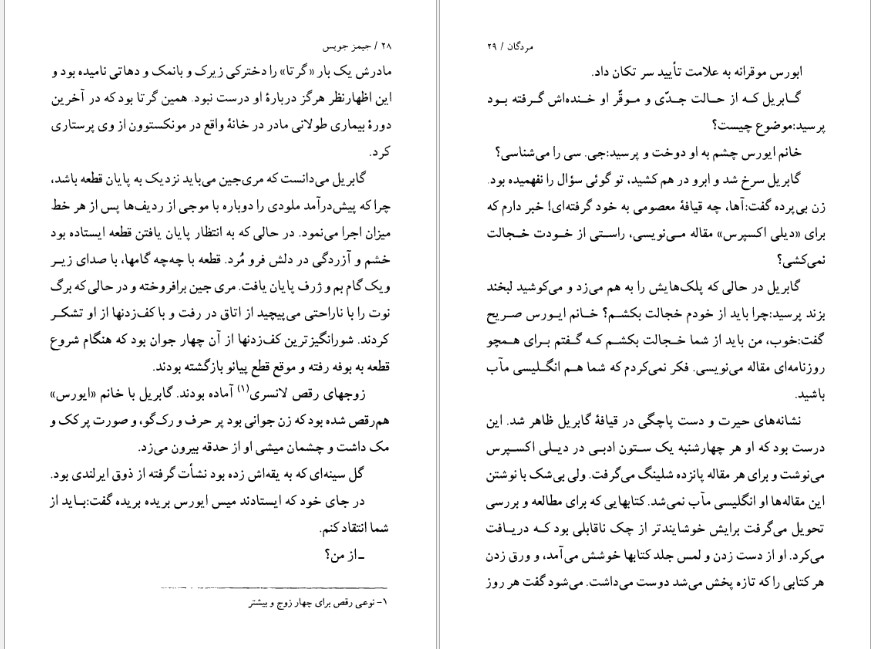 ۲۸ / جیمز جویس
مادرش یک بار «گرتا» را دخترکی زیرک و بانمک و دهاتی نامیده بود و
این اظهارنظر هرگز دربارهٔ او درست نبود. همین گرتا بود که در آخرین
دورهٔ بیماری طولانی مادر در خانهٔ واقع در مونکستوون از وی پرستاری
کرد.
گابریل می‌دانست که مری‌جین می‌باید نزدیک به پایان قطعه باشد،
چرا که پیش‌درآمد ملودی را دوباره با موجی از ردیف‌ها پس از هر خط
میزان اجرا می‌نمود. در حالی که به انتظار پایان یافتن قطعه ایستاده بود
خشم و آزردگی در دلش فرو مُرد. قطعه با چه‌چه گامها، با صدای زیر
و یک گام بم و ژرف پایان یافت. مری جین برافروخته و در حالی که برگ
نوت را با ناراحتی می‌پیچید از اتاق در رفت و با کف‌زدنها از او تشکر
کردند. شورانگیزترین کف‌زدنها از آن چهار جوان بود که هنگام شروع
قطعه به بوفه رفته و موقع قطع پیانو بازگشته بودند.
زوجهای رقص لانسری(۱) آماده بودند. گابریل با خانم «ایورس»
هم‌رقص شده بود که زن جوانی بود پر حرف و رک‌گو، و صورت پر کک و
مک داشت و چشمان میشی او از حدقه بیرون می‌زد.
گل سینه‌ای که به یقه‌اش زده بود نشأت گرفته از ذوق ایرلندی بود.
در جای خود که ایستادند میس ایورس بریده بریده گفت:باید از
شما انتقاد کنم.
ـ از من؟
۱- نوعی رقص برای چهار زوج و بیشتر
مردگان / ۲۹
ایورس موقرانه به علامت تأیید سر تکان داد.
گابریل که از حالت جدّی و موقّر او خنده‌اش گرفته بود
پرسید:موضوع چیست؟
خانم ایورس چشم به او دوخت و پرسید:جی. سی را می‌شناسی؟
گابریل سرخ شد و ابرو در هم کشید، تو گوئی سؤال را نفهمیده بود.
زن بی‌پرده گفت:آها، چه قیافهٔ معصومی به خود گرفته‌ای! خبر دارم که
برای «دیلی اکسپرس» مقاله می‌نویسی، راستی از خودت خجالت
نمی‌کشی؟
گابریل در حالی که پلک‌هایش را به هم می‌زد و می‌کوشید لبخند
بزند پرسید:چرا باید از خودم خجالت بکشم؟ خانم ایورس صریح
گفت:خوب، من باید از شما خجالت بکشم که گفتم برای همچو
روزنامه‌ای مقاله می‌نویسی. فکر نمی‌کردم که شما هم انگلیسی مآب
باشید.
نشانه‌های حیرت و دست پاچگی در قیافهٔ گابریل ظاهر شد. این
درست بود که او هر چهارشنبه یک ستون ادبی در دیلی اکسپرس
می‌نوشت و برای هر مقاله پانزده شلینگ می‌گرفت. ولی بی‌شک با نوشتن
این مقاله‌ها او انگلیسی مآب نمی‌شد. کتابهایی که برای مطالعه و بررسی
تحویل می‌گرفت برایش خوشایندتر از چک ناقابلی بود که دریافت
می‌کرد. او از دست زدن و لمس جلد کتابها خوشش می‌آمد، و ورق زدن
هر کتابی را که تازه پخش می‌شد دوست می‌داشت. می‌شود گفت هر روز